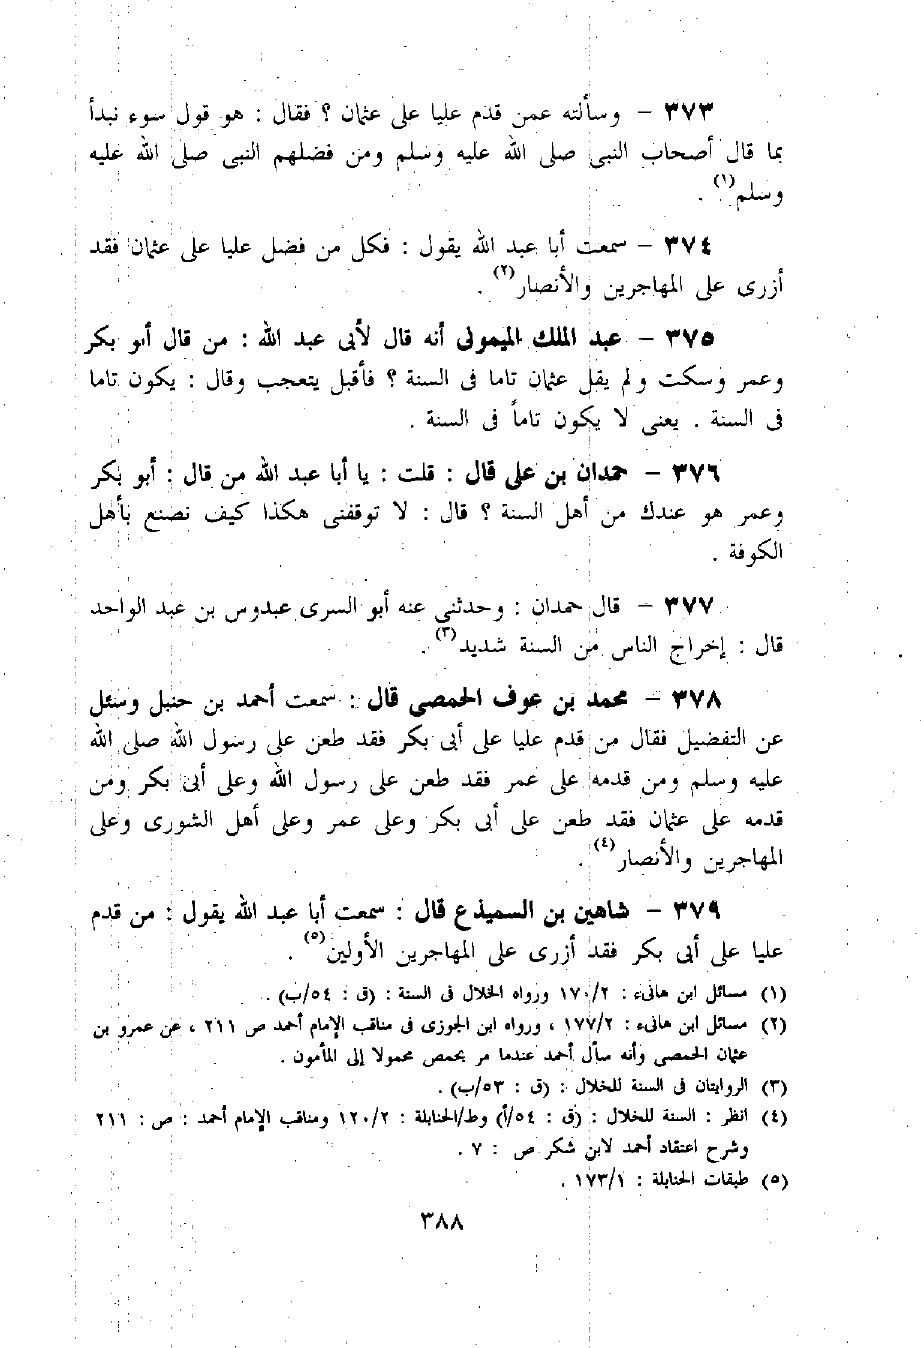 ٣٧٣ – وسألته عمن قدم عليا على عثمان ؟ فقال : هو قول سوء نبدأ
بما قال أصحاب النبى صلى الله عليه وسلم ومن فضلهم النبى صلى الله عليه
وسلم(١) .
٣٧٤ – سمعت أبا عبد الله يقول : فكل من فضل عليا على عثمان فقد
أزرى على المهاجرين والأنصار(٢) .
٣٧٥ – عبد الملك الميمونى أنه قال لأبى عبد الله : من قال أبو بكر
وعمر وسكت ولم يقل عثمان تاما فى السنة ؟ فأقبل يتعجب وقال : يكون تاما
فى السنة . يعنى لا يكون تاماً فى السنة .
٣٧٦ – حمدان بن على قال : قلت : يا أبا عبد الله من قال : أبو بكر
وعمر هو عندك من أهل السنة ؟ قال : لا توقفنى هكذا كيف نصنع بأهل
الكوفة .
٣٧٧ – قال حمدان : وحدثنى عنه أبو السرى عبدوس بن عبد الواحد
قال : إخراج الناس من السنة شديد(٣) .
٣٧٨ – محمد بن عوف الحمصى قال : سمعت أحمد بن حنبل وسئل
عن التفضيل فقال من قدم عليا على أبى بكر فقد طعن على رسول الله صلى الله
عليه وسلم ومن قدمه على عمر فقد طعن على رسول الله وعلى أبى بكر ومن
قدمه على عثمان فقد طعن على أبى بكر وعلى عمر وعلى أهل الشورى وعلى
المهاجرين والأنصار(٤) .
٣٧٩ – شاهين بن السميذع قال : سمعت أبا عبد الله يقول : من قدم
عليا على أبى بكر فقد أزرى على المهاجرين الأولين(٥) .
(١) مسائل ابن هانىء : ١٧٠/٢ ورواه الخلال فى السنة : (ق : ٥٤/ب) .
(٢) مسائل ابن هانىء : ١٧٧/٢ ، ورواه ابن الجوزى فى مناقب الإمام أحمد ص ٢١١ ، عن عمرو بن
عثمان الحمصى وأنه سأل أحمد عندما مر بحمص محمولا إلى المأمون .
(٣) الروايتان فى السنة للخلال : (ق : ٥٣/ب) .
(٤) انظر : السنة للخلال : (ق : ٥٤/أ) وط/الحنابلة : ١٢٠/٢ ومناقب الإمام أحمد : ص : ٢١١
وشرح اعتقاد أحمد لابن شكر ص : ٧ .
(٥) طبقات الحنابلة : ١٧٣/١ .
٣٨٨